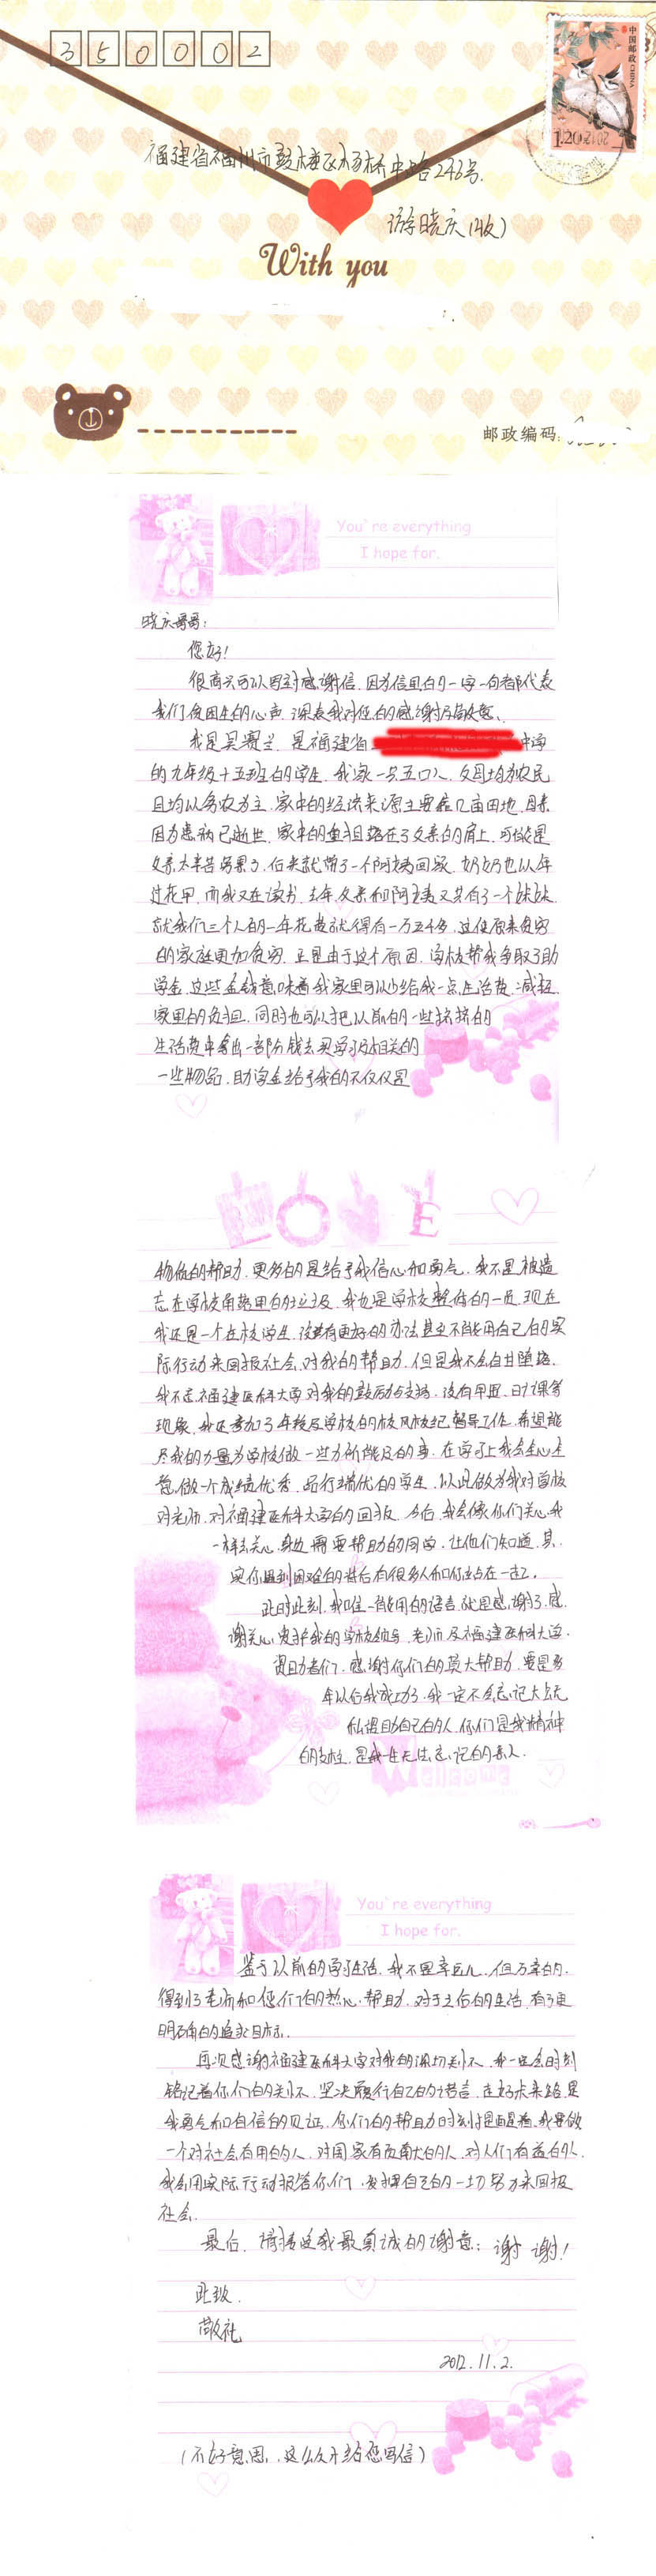 350002
中国邮政
CHINA
1.20元
福建省福州市鼓楼区杨桥中路246号.
游晓庆(收)
With you
邮政编码:
You're everything
I hope for.
晓庆哥哥:
您好!
很高兴可以回封感谢信.因为信里的一字一句都代表
我们贫困生的心声.深表我对您的感谢及敬意.
我是吴赛兰.是福建省 中学
的九年级十五班的学生.我家一共五口人.父母均为农民
且均以务农为主.家中的经济来源主要靠几亩田地.母亲
因为患病已逝世.家中的重担落在了父亲的肩上.可能是
父亲太辛苦劳累了.后来就带了一个阿姨回家.奶奶也以年
过花甲.而我又在读书.去年父亲和阿姨又共有了一个妹妹.
就我们三个人的一年花费就得有一万五千多.这使原来贫穷
的家庭更加贫穷.正是由于这个原因.学校帮我争取了助
学金.这些金钱意味着我家里可以少给我一点生活费.减轻
家里的负担.同时也可以把以前的一些
生活费中拿出一部分钱去买学习及相关的
一些物品.助学金给了我的不仅仅是
LOVE
物质的帮助.更多的是给了我信心和勇气.我不是被遗
忘在学校角落里的垃圾.我也是学校整体的一员.现在
我还是一个在校学生.没有更好的办法甚至不能用自己的实
际行动来回报社会.对我的帮助.但是我不会自甘堕落.
我不忘福建医科大学对我的鼓励与支持.没有早退、旷课等
现象.我还参加了年段及学校的校风校纪督导工作.希望能
尽我的力量为学校做一些力所能及的事.在学习上我会全心全
意.做一个成绩优秀.品行端优的学生.以此做为我对学校
对老师.对福建医科大学的回报.今后.我会像你们关心我
一样去关心身边需要帮助的同学.让他们知道.其
实你遇到困难的背后有很多人和你站在一起.
此时此刻.我唯一能用的语言.就是感谢了.感
谢关心.爱护我的学校领导.老师及福建医科大学
资助者们.感谢你们的莫大帮助.要是多
年以后我成功了.我一定不会忘记大公无
私援助自己的人.你们是我精神
的支柱.是我一生无法忘记的亲人.
Welcome
You're everything
I hope for.
鉴于以前的学习生活.我不是幸运儿.但万幸的.
得到了老师和您们的热心帮助.对于之后的生活.有了更
明确的追求目标.
再次感谢福建医科大学对我的深切关怀.我一定会时刻
铭记着你们的关怀.坚决履行自己的诺言.走好未来路.是
我勇气和自信的见证.你们的帮助时刻提醒着.我要做
一个对社会有用的人.对国家有贡献的人.对人们有益的人.
我会用实际行动报答你们.发挥自己的一切努力来回报
社会.
最后.请接受我最真诚的谢意:谢谢!
此致.
敬礼
2012.11.2.
(不好意思.这么久才给您回信)